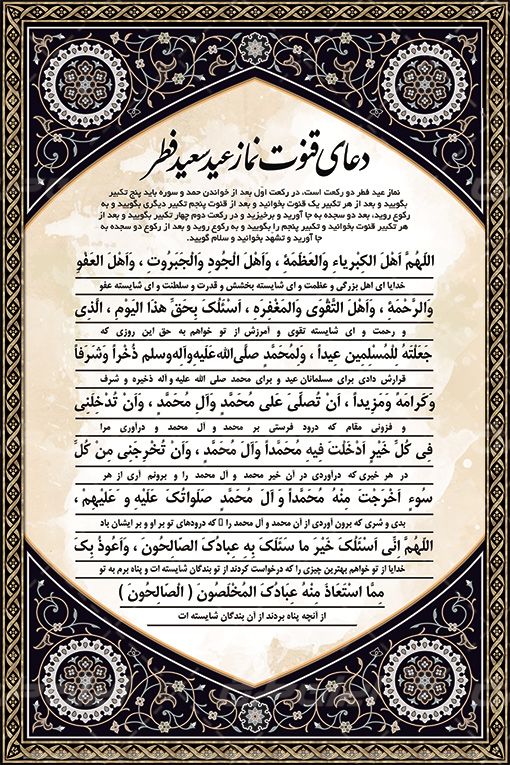 دعای قنوت نماز عید سعید فطر
نماز عید فطر دو رکعت است، در رکعت اول بعد از خواندن حمد و سوره باید پنج تکبیر
بگویید و بعد از هر تکبیر یک قنوت بخوانید و بعد از قنوت پنجم تکبیر دیگری بگویید و به
رکوع روید، بعد دو سجده به جا آورید و برخیزید و در رکعت دوم چهار تکبیر بگویید و بعد از
هر تکبیر قنوت بخوانید و تکبیر پنجم را بگویید و به رکوع روید و بعد از رکوع دو سجده به
جا آورید و تشهد بخوانید و سلام گویید.
اَللّهُمَّ اَهْلَ الْكِبْرِیاءِ وَالْعَظَمَةِ ، وَاَهْلَ الْجُودِ وَالْجَبَرُوتِ ، وَاَهْلَ الْعَفْوِ
خدایا ای اهل بزرگی و عظمت و ای شایسته بخشش و قدرت و سلطنت و ای شایسته عفو
وَالرَّحْمَةِ ، وَاَهْلَ التَّقْوى وَالْمَغْفِرَهِ ، اَسْئَلُکَ بِحَقِّ هذَا الْیَومِ ، الَّذِی
و رحمت و ای شایسته تقوی و آمرزش از تو خواهم به حق این روزی که
جَعَلْتَهُ لِلْمُسْلِمینَ عِیداً ، وَلِمُحَمَّدٍ صلَّی‌الله‌عَلَیهِ‌وآلِه‌وسلم ذُخْراً وَشَرَفاً
قرارش دادی برای مسلمانان عید و برای محمد صلی الله علیه و آله ذخیره و شرف
وَکَرامَهً وَمَزِیداً ، اَنْ تُصلَّیَ عَلى مُحَمَّدٍ وَآلِ مُحَمَّدٍ ، وَاَنْ تُدْخِلَنِی
و فزونی مقام که درود فرستی بر محمد و آل محمد و درآوری مرا
فِی کُلِّ خَیْرٍ اَدْخَلْتَ فِیهِ مُحَمَّداً وَآلَ مُحَمَّدٍ ، وَاَنْ تُخْرِجَنِی مِنْ کُلِّ
در هر خیری که درآوردی در آن خیر محمد و آل محمد را و برونم اری از هر
سُوءٍ اَخْرَجْتَ مِنْهُ مُحَمَّداً وَ آلَ مُحَمَّدٍ صَلَواتُکَ عَلَیْهِ وَ عَلَیْهِمْ ،
بدی و شری که برون آوردی از آن محمد و آل محمد را که درودهای تو بر او و بر ایشان باد
اَللّهُمَّ اِنِّی اَسْئَلُکَ خَیْرَ ما سَئَلَکَ بِهِ عِبادُکَ الصّالِحُونَ ، وَاَعُوذُ بِکَ
خدایا از تو خواهم بهترین چیزی را که درخواست کردند از تو بندگان شایسته ات و پناه برم به تو
مِمَّا اسْتَعاذَ مِنْهُ عِبادُکَ الْمُخْلَصُونَ ( الْصالِحُونَ )
از آنچه پناه بردند از آن بندگان شایسته ات